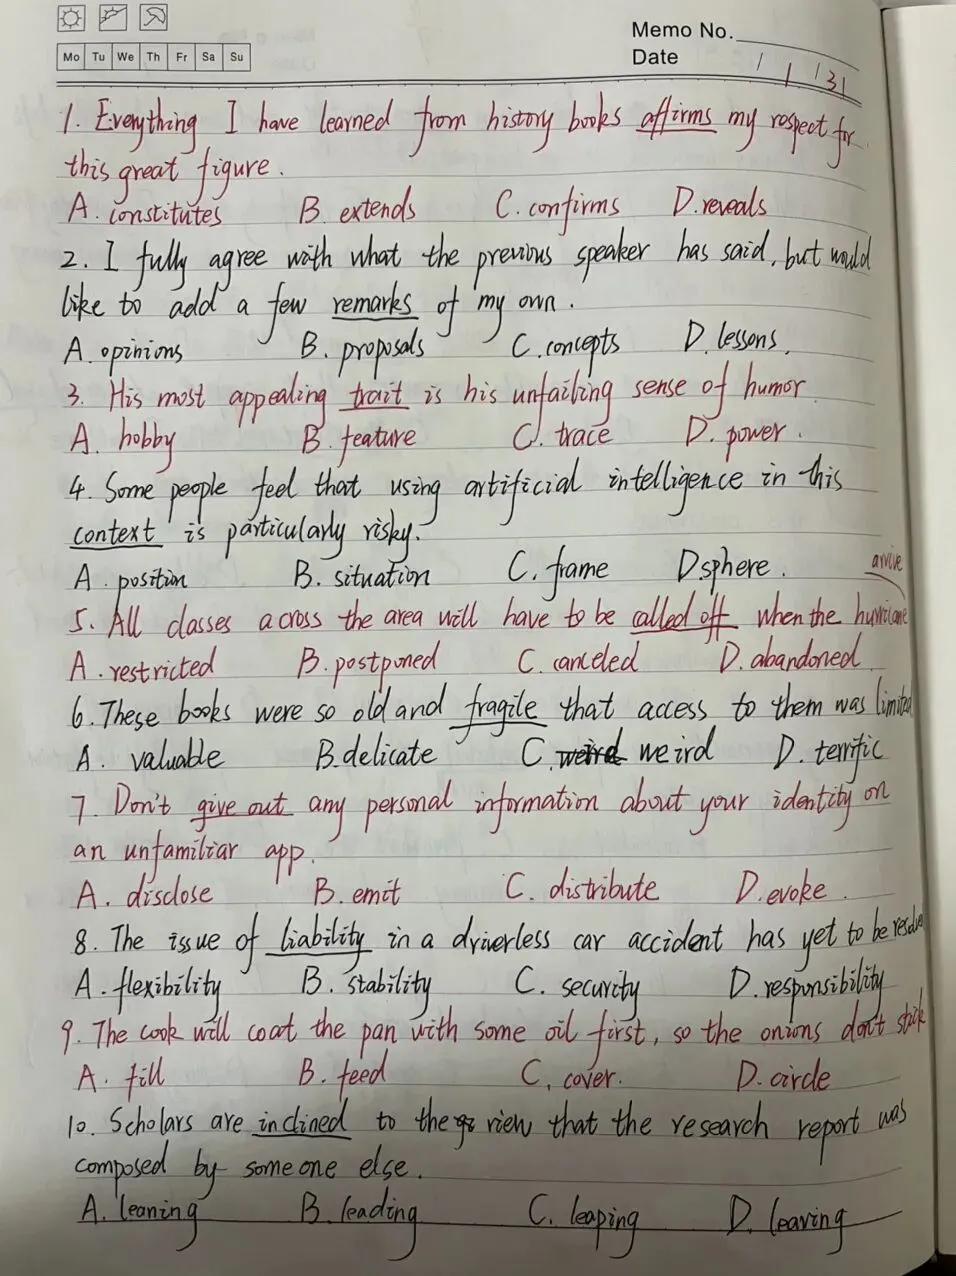 Memo No.
Mo Tu We Th Fr Sa Su
Date / / 31
1. Everything I have learned from history books affirms my respect for
this great figure.
A. constitutes B. extends C. confirms D. reveals
2. I fully agree with what the previous speaker has said, but would
like to add a few remarks of my own.
A. opinions B. proposals C. concepts D. lessons.
3. His most appealing trait is his unfailing sense of humor.
A. hobby B. feature C. trace D. power.
4. Some people feel that using artificial intelligence in this
context is particularly risky.
A. position B. situation C. frame D sphere.
arrive
5. All classes across the area will have to be called off when the hurricane
A. restricted B. postponed C. canceled D. abandoned
6. These books were so old and fragile that access to them was limited
A. valuable B. delicate C. weird weird D. terrific
7. Don't give out any personal information about your identity on
an unfamiliar app.
A. disclose B. emit C. distribute D. evoke.
8. The issue of liability in a driverless car accident has yet to be
A. flexibility B. stability C. security D. responsibility
9. The cook will coat the pan with some oil first, so the onions don't stick
A. fill B. feed C. cover. D. circle
10. Scholars are inclined to the view that the research report was
composed by someone else.
A. leaning B. leading C. leaping D. leaving